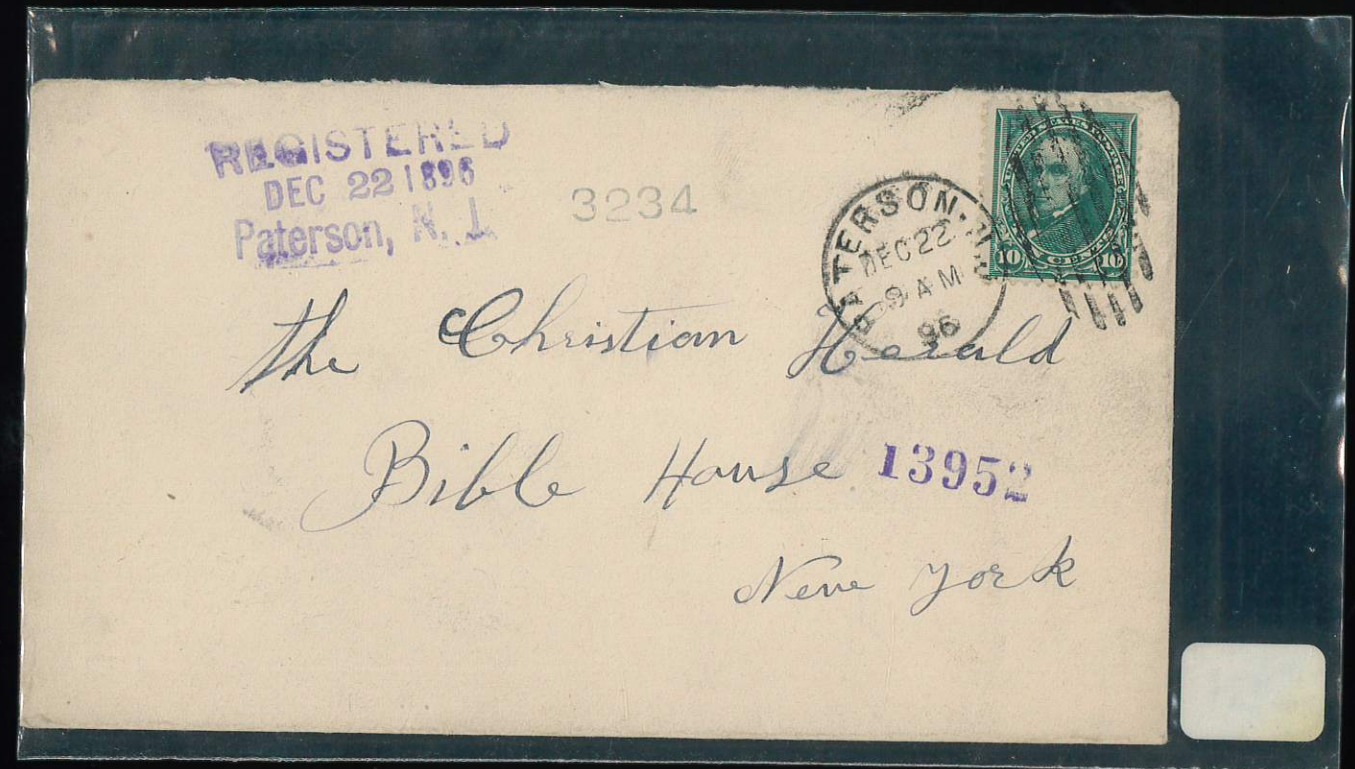 REGISTERED
DEC 22 1896
Paterson, N. J.
3234
PATERSON. N.J.
DEC 22
9 AM
96
10 CENTS 10
The Christian Herald
Bible House
13952
New York